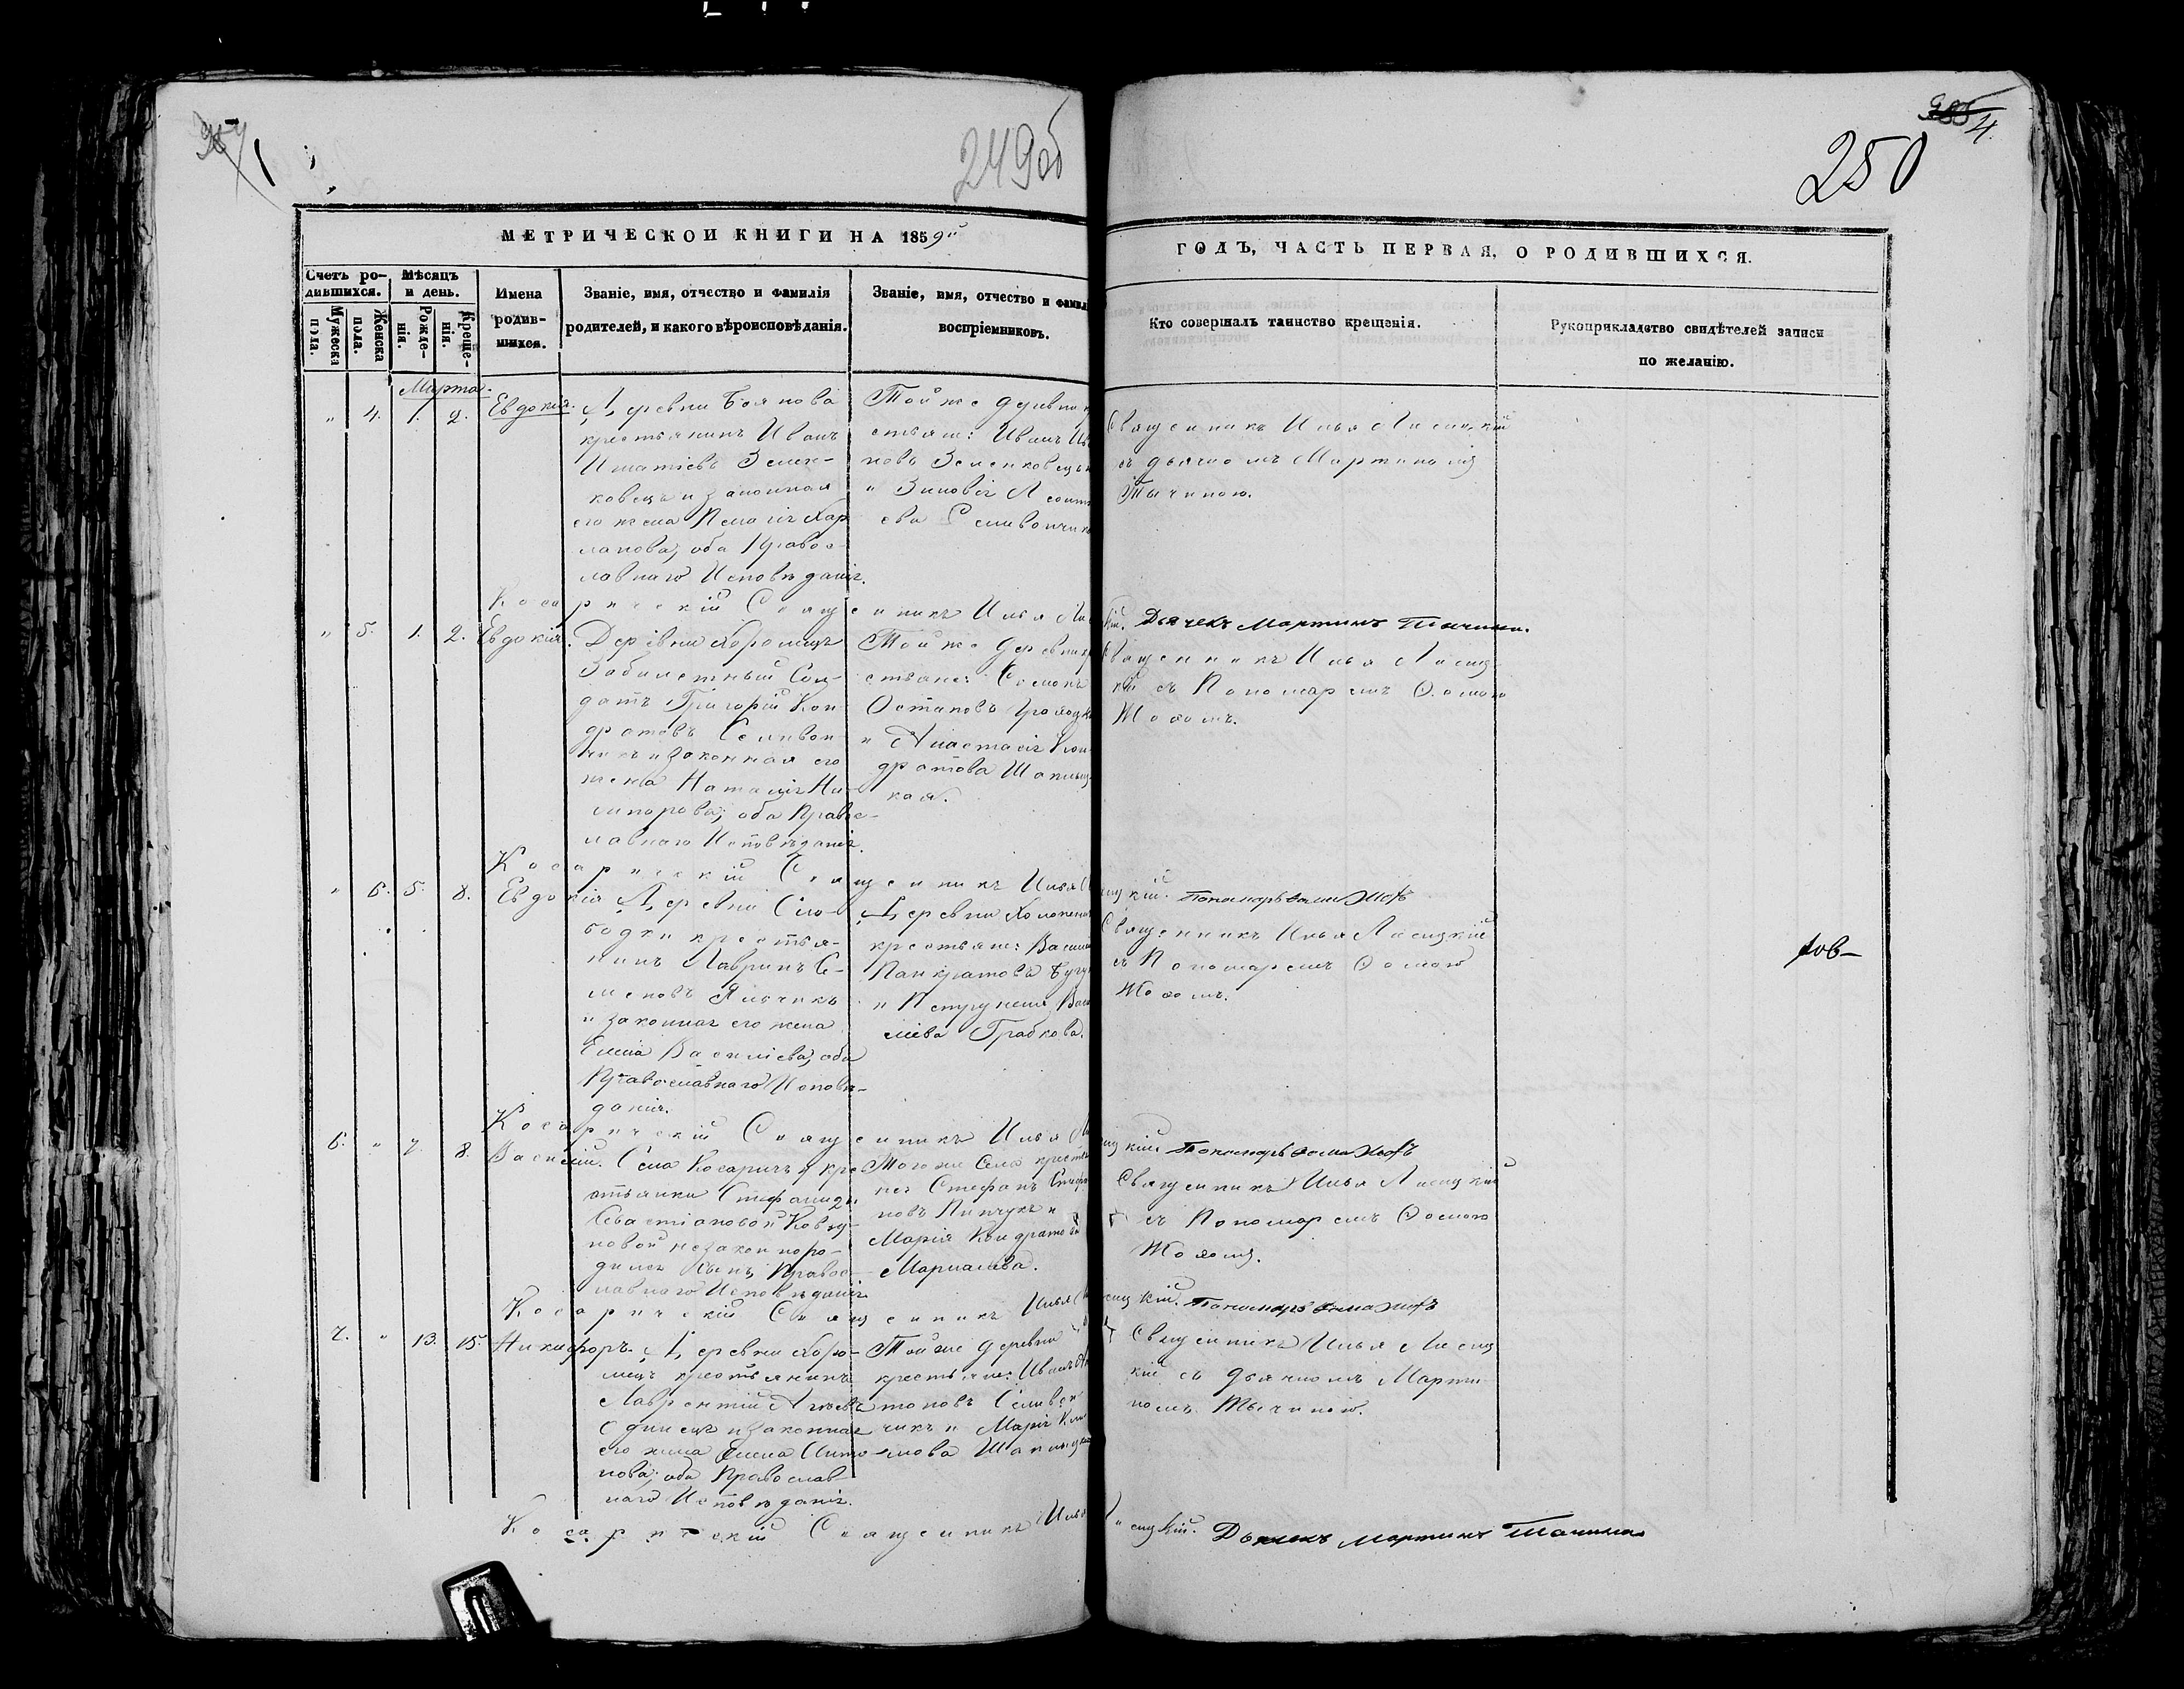 249об
250
4.
МЕТРИЧЕСКОЙ КНИГИ НА 1859й
ГОДЪ, ЧАСТЬ ПЕРВАЯ, О РОДИВШИХСЯ.
Счетъ ро-
дившихся.
Мужеска
пола.
Женска
пола.
Мѣсяцъ
и день.
Рожде-
нія.
Креще-
нія.
Имена
родив-
шихся.
Званіе, имя, отчество и фамилія
родителей, и какого вѣроисповѣданія.
Званіе, имя, отчество и фамилі
воспріемниковъ.
Кто совершалъ таинство крещенія.
Рукоприкладство свидѣтелей записи
по желанію.
Марта
" 4. 1. 2. Евдокія.
Деревни Боянова
крестьянинъ Иванъ
Игнатіевъ Зенек-
ковецъ и законная
его жена Пелагія Хар
лапова, оба Правос-
лавнаго Исповѣданія.
Той же деревни к
стьян: Иванъ Ив
новъ Зененковецъ
и Зиновія Леонт
ева Селивончик
Священникъ Илья Лисицкій
съ дьячкомъ Мартиномъ
Тычиною.
Косаричскій Священникъ Илья Ли
кій. Дьячекъ Мартинъ Тычина.
" 5. 1. 2. Евдокія.
Деревни Хоромецъ
Забилетный Сол-
датъ Григорій Кон
дратовъ Селивон-
чикъ и законная его
жена Наталія Ни-
чипорова, оба Правос-
лавнаго Исповѣданія.
Той же деревни кр
стьяне: Семонъ
Остаповъ
и Анастасія Кон-
дратова Шапиц-
кая.
Священникъ Илья Лисиц-
кій съ Пономаремъ Ѳомою
Жовомъ.
Косаричскій Священникъ Илья
ицкій. Пономарь Ѳома Жовъ
" 6. 5. 8. Евдокія
Деревни Сло-
бодки крестья-
нинъ Лавринъ Се-
меновъ Яльчикъ
и законная его жена
Елена Василіева, оба
Православнаго Исповѣ-
данія.
Деревни Холопенич
крестьян: Васил
Панкратовъ
и Петрунеля Васи
лева Грабкова.
Священникъ Илья Лисицкій
съ Пономаремъ Ѳомою
Жовомъ.
Косаричскій Священникъ Илья Ли
ицкій. Пономарь Ѳома Жовъ
6. " 7. 8. Василій.
Села Косаричъ у кре
стьянки Стефаниды
Севастіановой Ковту-
новой незаконноро-
дился сынъ, Правос-
лавнаго Исповѣданія.
Того же Села крестья
не: Стефанъ Стеф
новъ Пинчукъ и
Марія Кондратова
Маркалева.
Священникъ Илья Лисицкій
съ Пономаремъ Ѳомою
Жовомъ.
Косаричскій Священникъ Илья
сицкій. Пономарь Ѳома Жовъ
7. " 13. 15. Никифоръ.
Деревни Хоро-
мецъ крестьянинъ
Лаврентій
Одинецъ и законная
его жена Елена Анто-
нова, оба Православ-
наго Исповѣданія.
Той же деревни
крестьян: Иванъ Ан
тоновъ Селивон
чикъ и Марія Кли
мова Шапицкая
Священникъ Илья Лисиц
кій съ дьячкомъ Марти
номъ Тычиною.
Косаричскій Священникъ Илья
Лисицкій. Дьячекъ Мартинъ Тычина